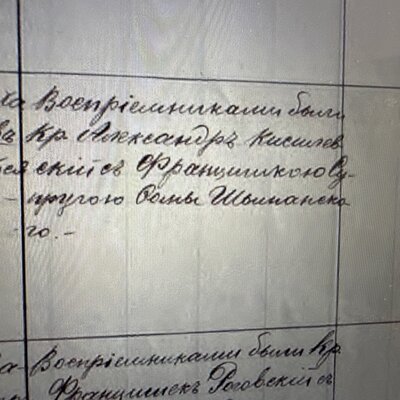 ха Воспріемниками были
Кр. Александръ Кисилев
скій съ Францишкою Су-
- пругою Фомы Шыманска
го. -
Воспріемниками были Кр.
Францишекъ Роговскій съ